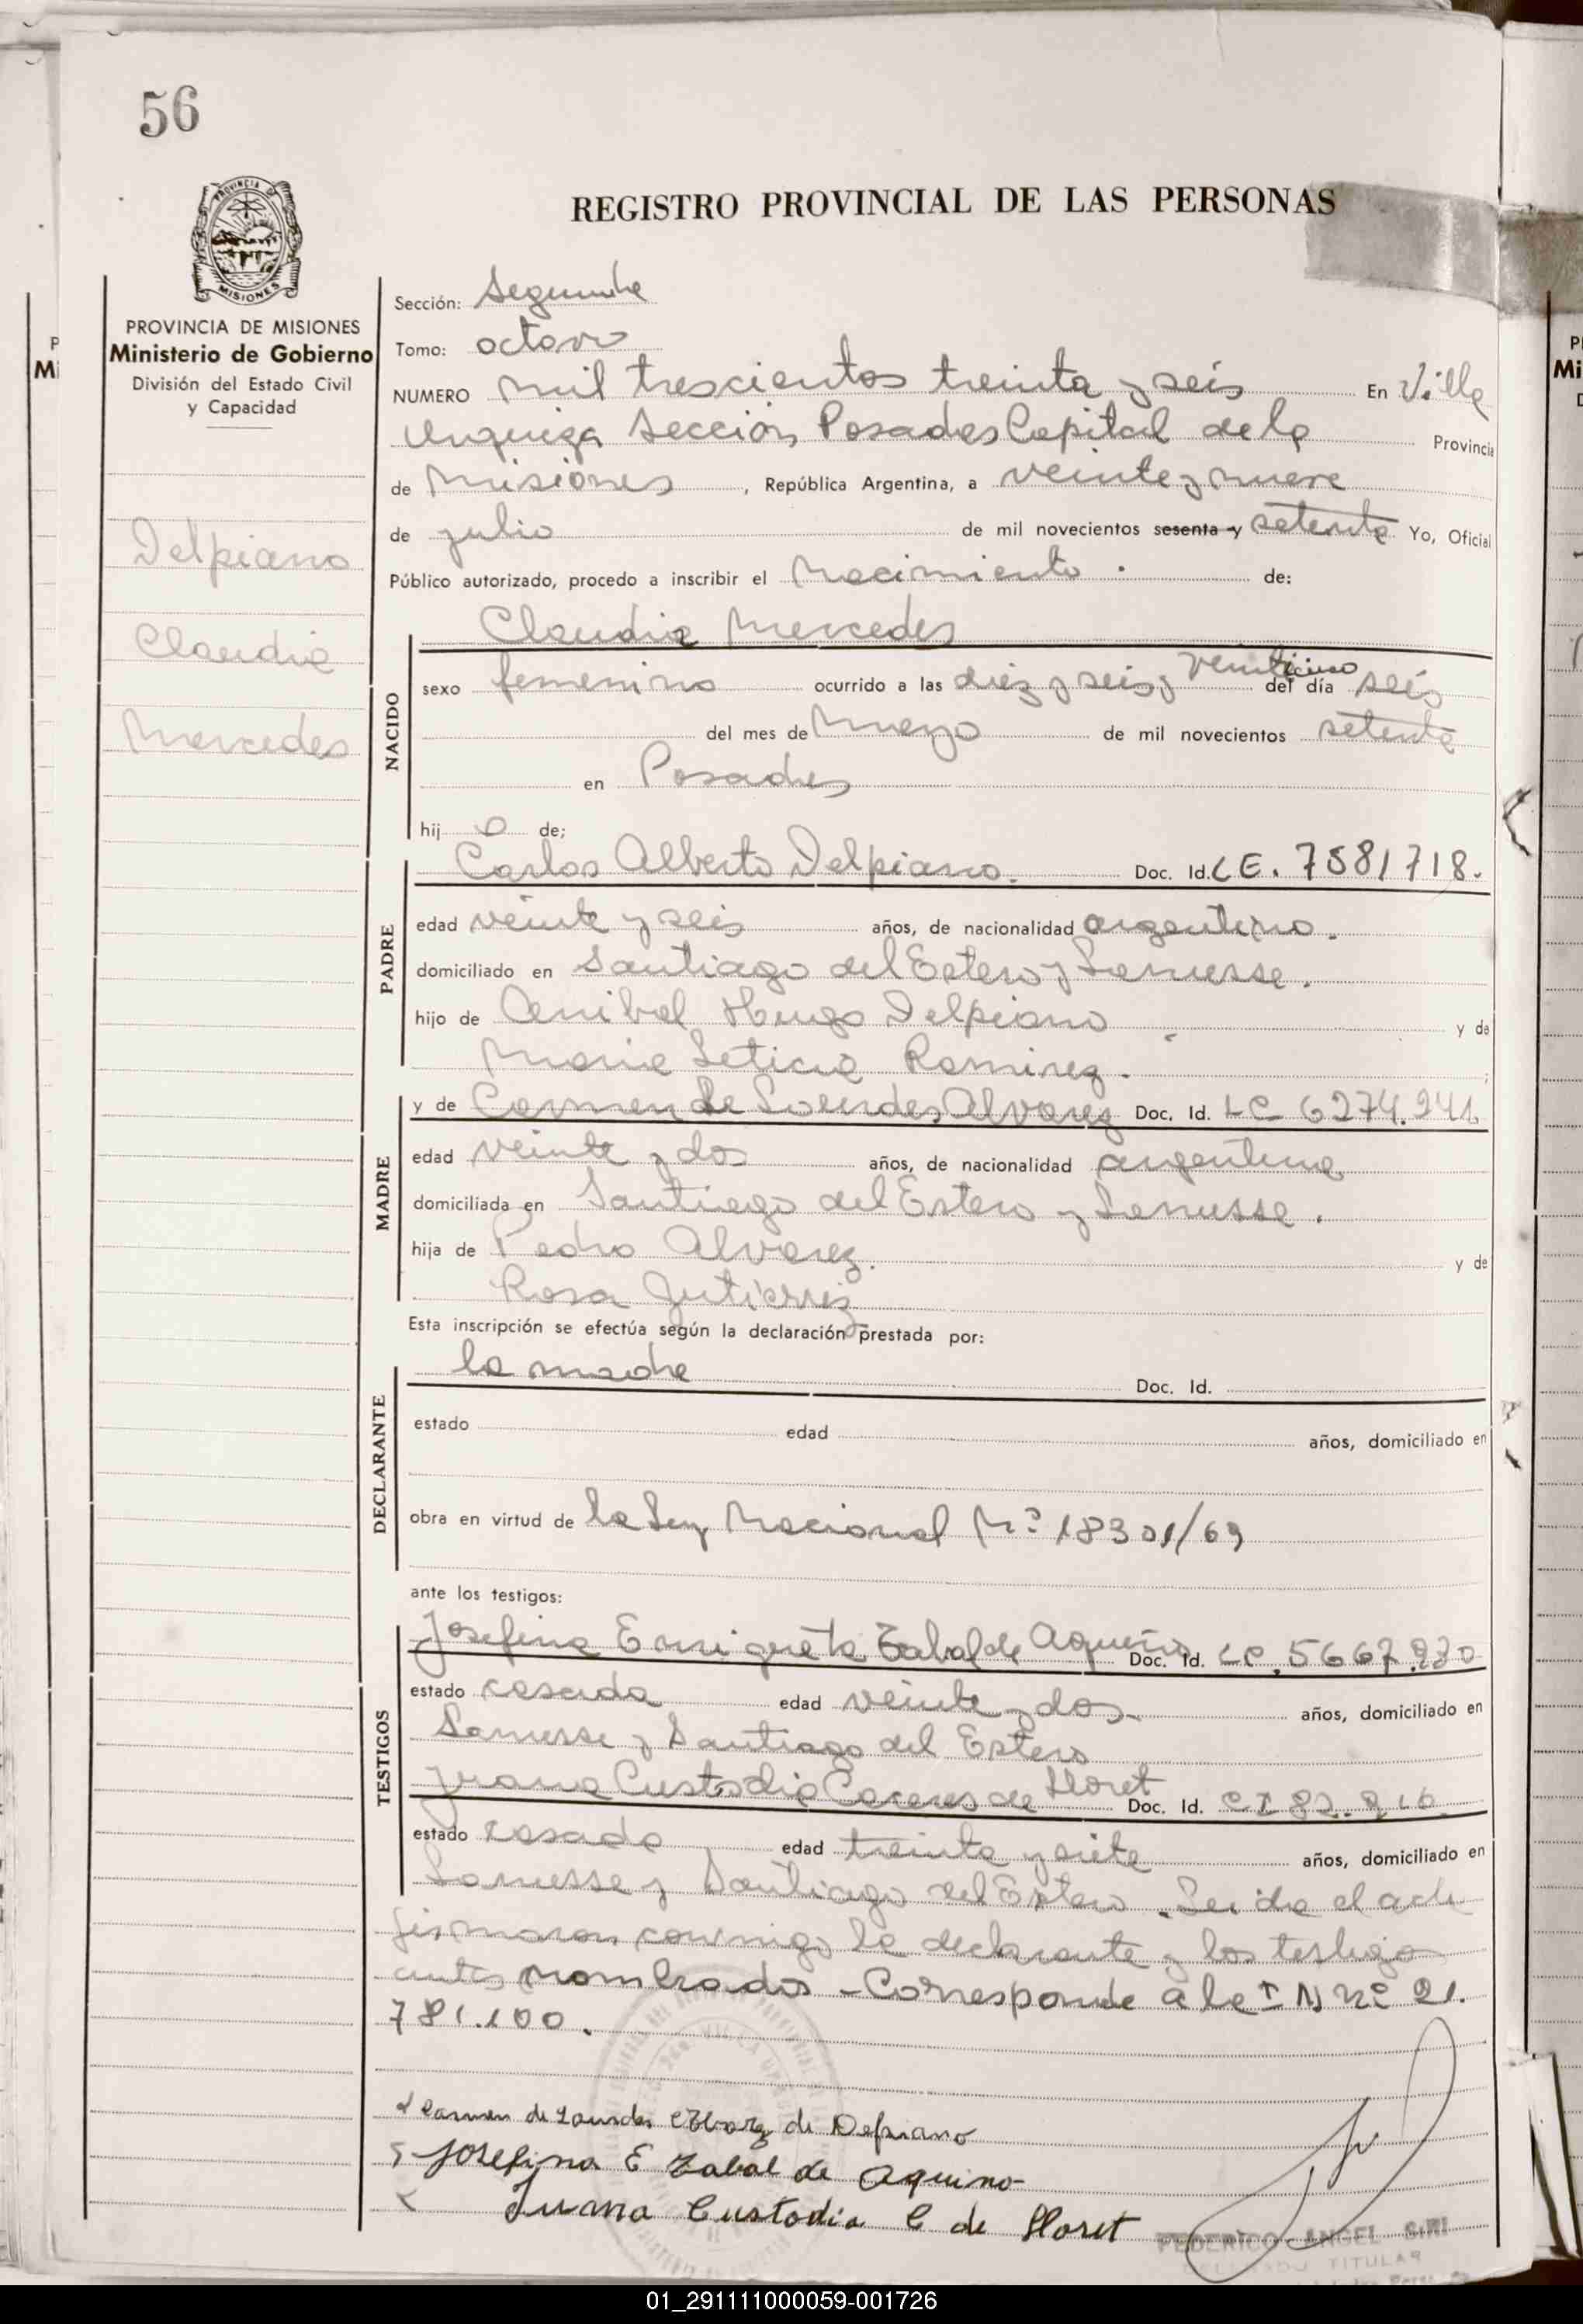 56
REGISTRO PROVINCIAL DE LAS PERSONAS
PROVINCIA DE MISIONES
Ministerio de Gobierno
División del Estado Civil
y Capacidad
Delpiano
Claudia
Mercedes
Sección: Segunda
Tomo: octavo
NUMERO mil trescientos treinta y seis En Villa
Urquiza Sección Posadas Capital de la Provincia
de Misiones, República Argentina, a veinte y nueve
de julio de mil novecientos sesenta y setenta Yo, Oficial
Público autorizado, procedo a inscribir el Nacimiento. de:
NACIDO
Claudia Mercedes
sexo femenino ocurrido a las diez y seis y veinticinco del día seis
del mes de Marzo de mil novecientos setenta
en Posadas
hij a de;
PADRE
Carlos Alberto Delpiano. Doc. Id. LE. 7581718.
edad veinte y seis años, de nacionalidad argentino.
domiciliado en Santiago del Estero y Lanusse.
hijo de Anibal Hugo Delpiano y de
Maria Leticia Ramirez.
MADRE
y de Carmen de Lourdes Alvarez Doc. Id. LC 6274.241
edad veinte y dos años, de nacionalidad argentina
domiciliada en Santiago del Estero y Lanusse.
hija de Pedro Alvarez. y de
Rosa Gutierrez
Esta inscripción se efectúa según la declaración prestada por:
DECLARANTE
la madre Doc. Id.
estado edad años, domiciliado en
obra en virtud de la Ley Nacional Nº 18301/69
ante los testigos:
TESTIGOS
Josefina Enriqueta Zabal de Aquino Doc. Id. LC. 5667.230
estado casada edad veinte y dos años, domiciliado en
Lanusse y Santiago del Estero
Juana Custodia Caceres de Lloret Doc. Id. CI 82.216
estado casada edad treinta y siete años, domiciliado en
Lanusse y Santiago del Estero. Leida el acta
firmaron conmigo la declarante y los testigos
antes nombrados - Corresponde a la I N nº 21.
781.100.
Carmen de Lourdes Alvarez de Delpiano
Josefina E Zabal de Aquino
Juana Custodia C de Lloret
FEDERICO ANGEL SIRI
TITULAR
01_291111000059-001726